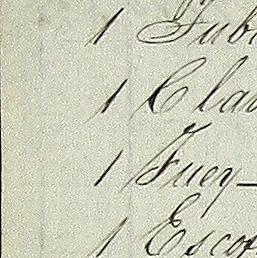 1 Tub
1 Clar
1 Fuey—
1 Escof